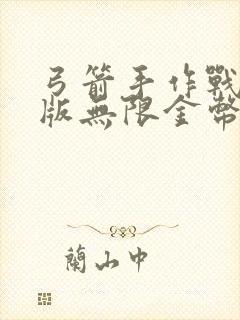 弓箭手作戰
版無限金幣
蘭山中